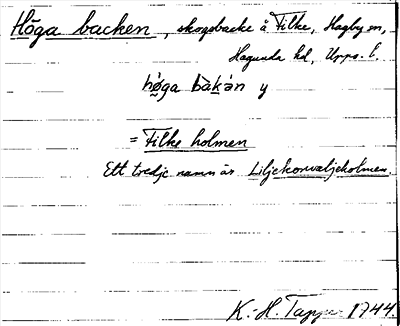 Höga backen, skogsbacke å Filke, Hagby sn,
Hagunda hd, Upps. l.
hö̀ga bàkàn y
= Filke holmen
Ett tredje namn är Liljekonvaljeholmen.
K.-H. Tapper 1944.